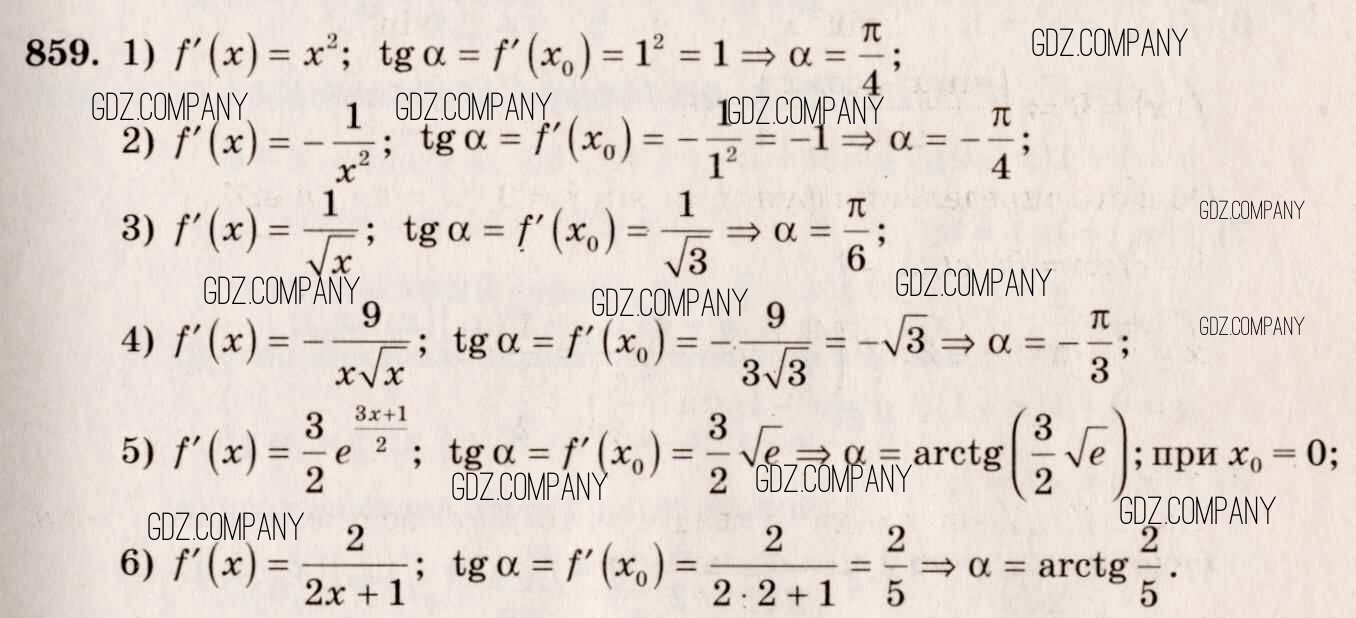 859. 1) f′(x) = x²; tg α = f′(x₀) = 1² = 1 ⇒ α = π/4;
GDZ.COMPANY
GDZ.COMPANY GDZ.COMPANY GDZ.COMPANY
2) f′(x) = −1/x²; tg α = f′(x₀) = −1/1² = −1 ⇒ α = −π/4;
3) f′(x) = 1/√x; tg α = f′(x₀) = 1/√3 ⇒ α = π/6;
GDZ.COMPANY
GDZ.COMPANY GDZ.COMPANY GDZ.COMPANY
4) f′(x) = −9/(x√x); tg α = f′(x₀) = −9/(3√3) = −√3 ⇒ α = −π/3;
GDZ.COMPANY
5) f′(x) = 3/2 e^((3x+1)/2); tg α = f′(x₀) = 3/2 √e ⇒ α = arctg(3/2 √e); при x₀ = 0;
GDZ.COMPANY GDZ.COMPANY
GDZ.COMPANY GDZ.COMPANY
6) f′(x) = 2/(2x + 1); tg α = f′(x₀) = 2/(2 · 2 + 1) = 2/5 ⇒ α = arctg 2/5.